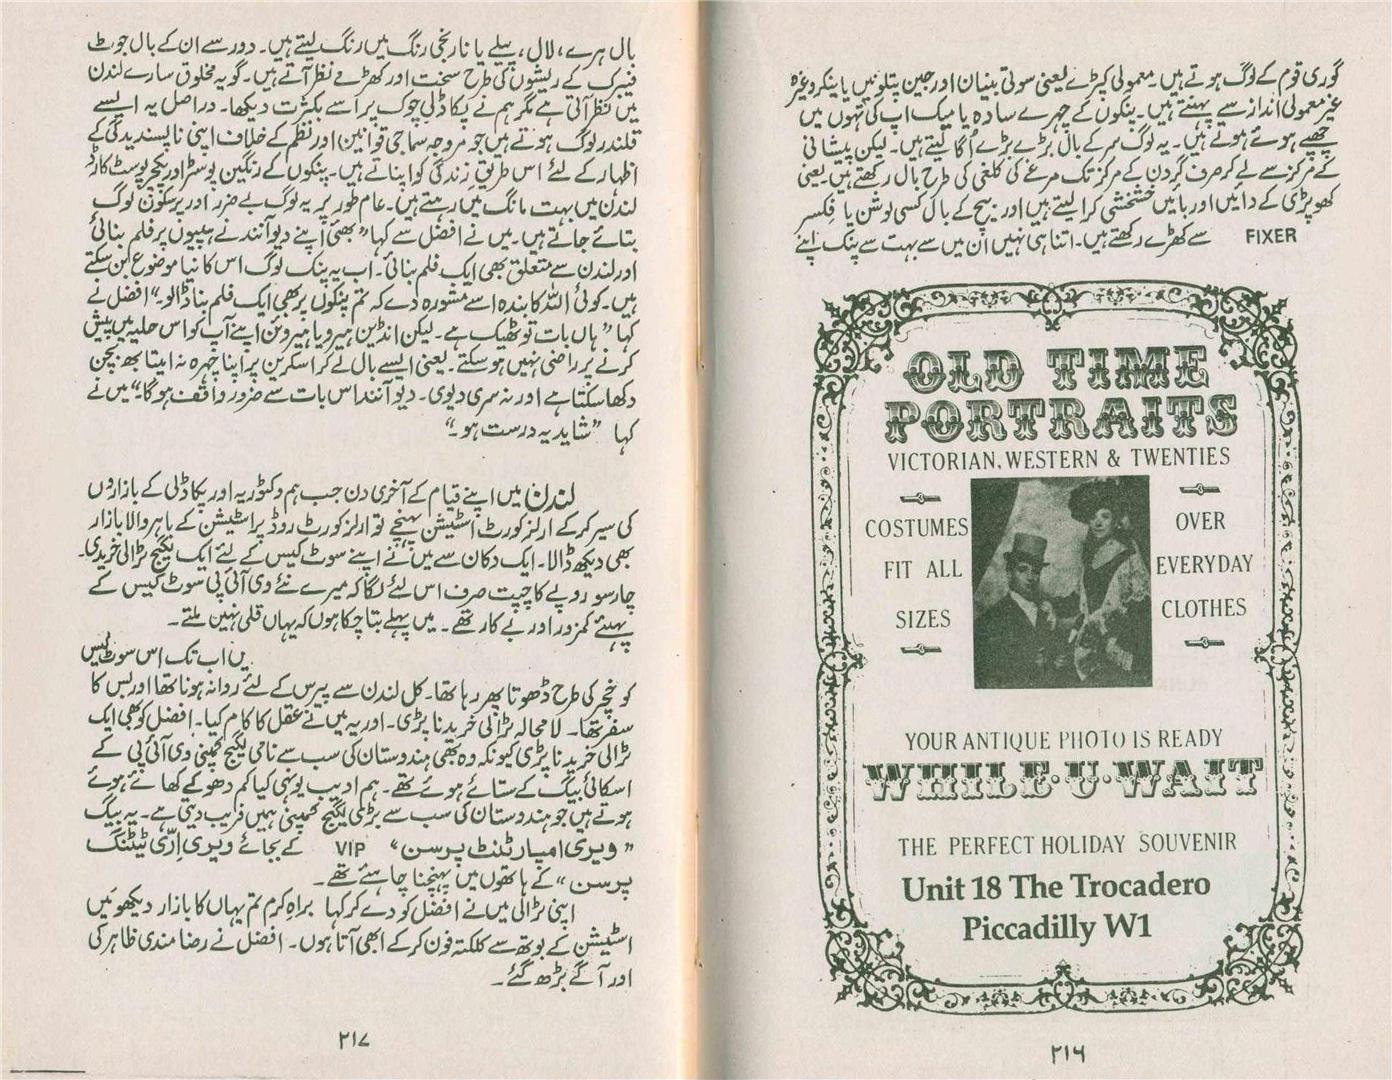 گوری قوم کے لوگ ہوتے ہیں۔ معمولی کپڑے یعنی سوتی بنیان اور جین پتلونیں یا نیکر وغیرہ
غیر معمولی انداز سے پہنتے ہیں۔ پنکوں کے چہرے سادہ یا میک اپ کی تہوں میں
چھپے ہوئے ہوتے ہیں۔ یہ لوگ سر کے بال بڑے بڑے اُگا لیتے ہیں۔ لیکن پیشانی
کے مرکز سے لے کر صرف گردن کے مرکز تک مرغے کی کلغی کی طرح بال رکھتے ہیں۔ یعنی
کھوپڑی کے دائیں اور بائیں خشخشی کرا لیتے ہیں اور بیچ کے بال کسی لوشن یا فِکسر
FIXER سے کھڑے رکھتے ہیں۔ اتنا ہی نہیں ان میں سے بہت سے پنک اپنے
OLD TIME
PORTRAITS
VICTORIAN, WESTERN & TWENTIES
COSTUMES
FIT ALL
SIZES
OVER
EVERYDAY
CLOTHES
YOUR ANTIQUE PHOTO IS READY
WHILE·U·WAIT
THE PERFECT HOLIDAY SOUVENIR
Unit 18 The Trocadero
Piccadilly W1
۲۱۶
بال ہرے، لال، پیلے یا نارنجی رنگ میں رنگ لیتے ہیں۔ دور سے ان کے بال جوٹ
فیبرک کے ریشوں کی طرح سخت اور کھڑے نظر آتے ہیں۔ گو یہ مخلوق سارے لندن
میں نظر آتی ہے مگر ہم نے پکاڈلی چوک پر اسے بکثرت دیکھا۔ دراصل یہ ایسے
قلندر لوگ ہوتے ہیں جو مروجہ سماجی قوانین اور نظم کے خلاف اپنی ناپسندیدگی کے
اظہار کے لئے اس طریقِ زندگی کو اپناتے ہیں۔ پنکوں کے رنگین پوسٹر اور پکچر پوسٹ کارڈ
لندن میں بہت مانگ میں رہتے ہیں۔ عام طور پر یہ لوگ بے ضرر اور پرسکون لوگ
بتائے جاتے ہیں۔ میں نے افضل سے کہا ”بھئی اپنے دیو آنند نے ہپیوں پر فلم بنائی
اور لندن سے متعلق بھی ایک فلم بنائی۔ اب یہ پنک لوگ اس کا نیا موضوع بن سکتے
ہیں۔ کوئی اللہ کا بندہ اسے مشورہ دے کہ تم پنکوں پر بھی ایک فلم بنا ڈالو۔“ افضل نے
کہا ”ہاں بات تو ٹھیک ہے۔ لیکن انڈین ہیرو یا ہیروئن اپنے آپ کو اس حلیہ میں پیش
کرنے پر راضی نہیں ہو سکتے۔ یعنی ایسے بال لے کر اسکرین پر اپنا چہرہ نہ امیتابھ بچن
دکھا سکتا ہے اور نہ سری دیوی۔ دیو آنند اس بات سے ضرور واقف ہوگا۔“ میں نے
کہا ”شاید یہ درست ہو۔“
لندن میں اپنے قیام کے آخری دن جب ہم وکٹوریہ اور پکاڈلی کے بازاروں
کی سیر کر کے ارلز کورٹ اسٹیشن پہنچے تو ارلز کورٹ روڈ پر اسٹیشن کے باہر والا بازار
بھی دیکھ ڈالا۔ ایک دکان سے میں نے اپنے سوٹ کیس کے لئے ایک لگیج ٹرالی خریدی۔
چار سو روپے کا چپت صرف اس لئے لگا کہ میرے نئے وی آئی پی سوٹ کیس کے
پہیئے کمزور اور بے کار تھے۔ میں پہلے بتا چکا ہوں کہ یہاں قلی نہیں ملتے۔
یں اب تک اس سوٹ کیس
کو خچر کی طرح ڈھوتا پھر رہا تھا۔ کل لندن سے پیرس کے لئے روانہ ہونا تھا اور بس کا
سفر تھا۔ لا محالہ ٹرالی خریدنا پڑی۔ اور یہ میں نے عقل کا کام کیا۔ افضل کو بھی ایک
ٹرالی خریدنا پڑی کیونکہ وہ بھی ہندوستان کی سب سے نامی لگیج کمپنی وی آئی پی کے
اسکائی بیگ کے ستائے ہوئے تھے۔ ہم ادیب یونہی کیا کم دھوکے کھائے ہوئے
ہوتے ہیں جو ہندوستان کی سب سے بڑی لگیج کمپنی ہمیں فریب دیتی ہے۔ یہ بیگ
”ویری امپارٹنٹ پرسن“ VIP کے بجائے ویری اِرّی ٹیٹنگ
پرسن“ کے ہاتھوں میں پہنچنا چاہئے تھے۔
اپنی ٹرالی میں نے افضل کو دے کر کہا براہِ کرم تم یہاں کا بازار دیکھو میں
اسٹیشن کے بوتھ سے کلکتہ فون کر کے ابھی آتا ہوں۔ افضل نے رضامندی ظاہر کی
اور آگے بڑھ گئے۔
۲۱۷